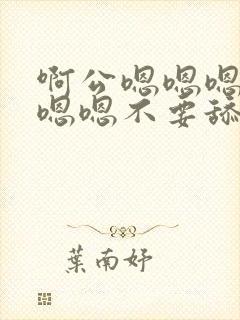 啊公嗯嗯嗯
嗯嗯不要舔
葉南妤